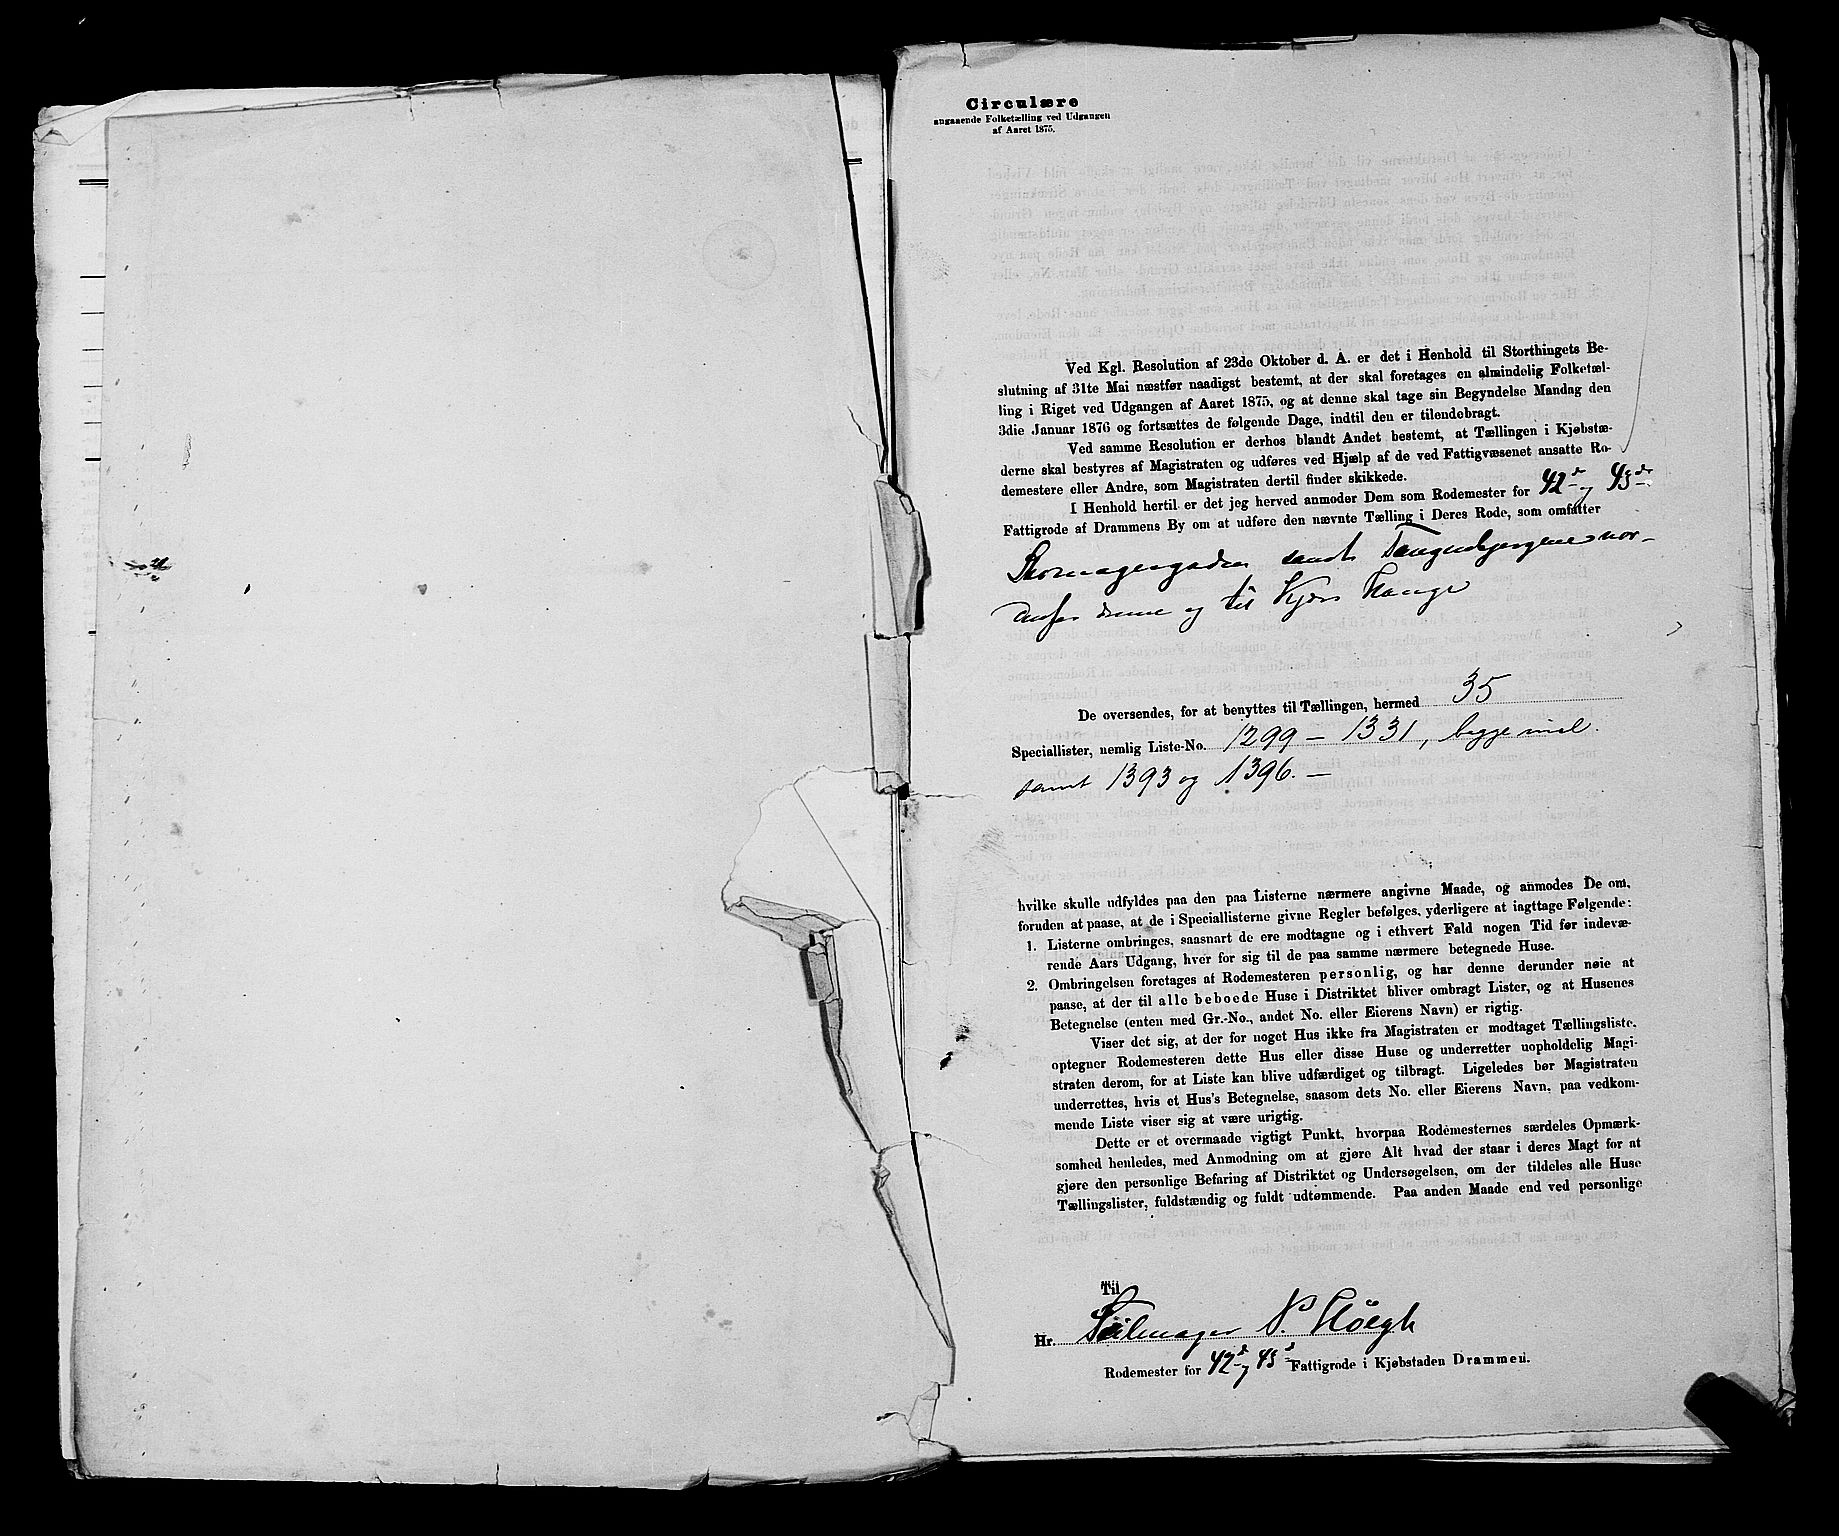 Circulære
angaaende Folketælling ved Udgangen
af Aaret 1875.
Ved Kgl. Resolution af 23de Oktober d. A. er det i Henhold til Storthingets Be-
slutning af 31te Mai næstfør naadigst bestemt, at der skal foretages en almindelig Folketæl-
ling i Riget ved Udgangen af Aaret 1875, og at denne skal tage sin Begyndelse Mandag den
3die Januar 1876 og fortsættes de følgende Dage, indtil den er tilendebragt.
Ved samme Resolution er derhos blandt Andet bestemt, at Tællingen i Kjøbstæ-
derne skal bestyres af Magistraten og udføres ved Hjælp af de ved Fattigvæsenet ansatte Ro-
demestere eller Andre, som Magistraten dertil finder skikkede.
I Henhold hertil er det jeg herved anmoder Dem som Rodemester for 42de og 43de
Fattigrode af Drammens By om at udføre den nævnte Tælling i Deres Rode, som omfatter
Skomagergaden samt Tangenbjergene nor-
denfor denne og til
De oversendes, for at benyttes til Tællingen, hermed 35
Speciallister, nemlig Liste-No. 1299 – 1331, begge incl.
samt 1393 og 1396. –
hvilke skulle udfyldes paa den paa Listerne nærmere angivne Maade, og anmodes De om,
foruden at paase, at de i Speciallisterne givne Regler befølges, yderligere at iagttage Følgende:
1. Listerne ombringes, saasnart de ere modtagne og i ethvert Fald nogen Tid før indevæ-
rende Aars Udgang, hver for sig til de paa samme nærmere betegnede Huse.
2. Ombringelsen foretages af Rodemesteren personlig, og har denne derunder nøie at
paase, at der til alle beboede Huse i Distriktet bliver ombragt Lister, og at Husenes
Betegnelse (enten med Gr.-No., andet No. eller Eierens Navn) er rigtig.
Viser det sig, at der for noget Hus ikke fra Magistraten er modtaget Tællingsliste,
optegner Rodemesteren dette Hus eller disse Huse og underretter uopholdelig Magi-
straten derom, for at Liste kan blive udfærdiget og tilbragt. Ligeledes bør Magistraten
underrettes, hvis et Hus's Betegnelse, saasom dets No. eller Eierens Navn, paa vedkom-
mende Liste viser sig at være urigtig.
Dette er et overmaade vigtigt Punkt, hvorpaa Rodemesternes særdeles Opmærk-
somhed henledes, med Anmodning om at gjøre Alt hvad der staar i deres Magt for at
gjøre den personlige Befaring af Distriktet og Undersøgelsen, om der tildeles alle Huse
Tællingslister, fuldstændig og fuldt udtømmende. Paa anden Maade end ved personlige
Til
Hr. Seilmager P. Høegh
Rodemester for 42de og 43de Fattigrode i Kjøbstaden Drammen.